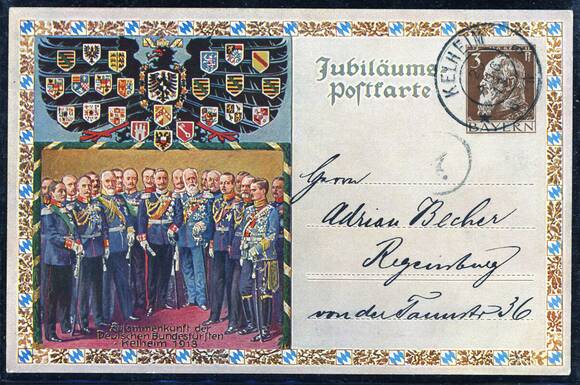 Jubiläums
Postkarte
KELHEIM
3 Pf
BAYERN
Herrn
Adrian Becher
Regensburg
von der Tannstr 36
Zusammenkunft der
Deutschen Bundesfürsten
Kelheim 1913